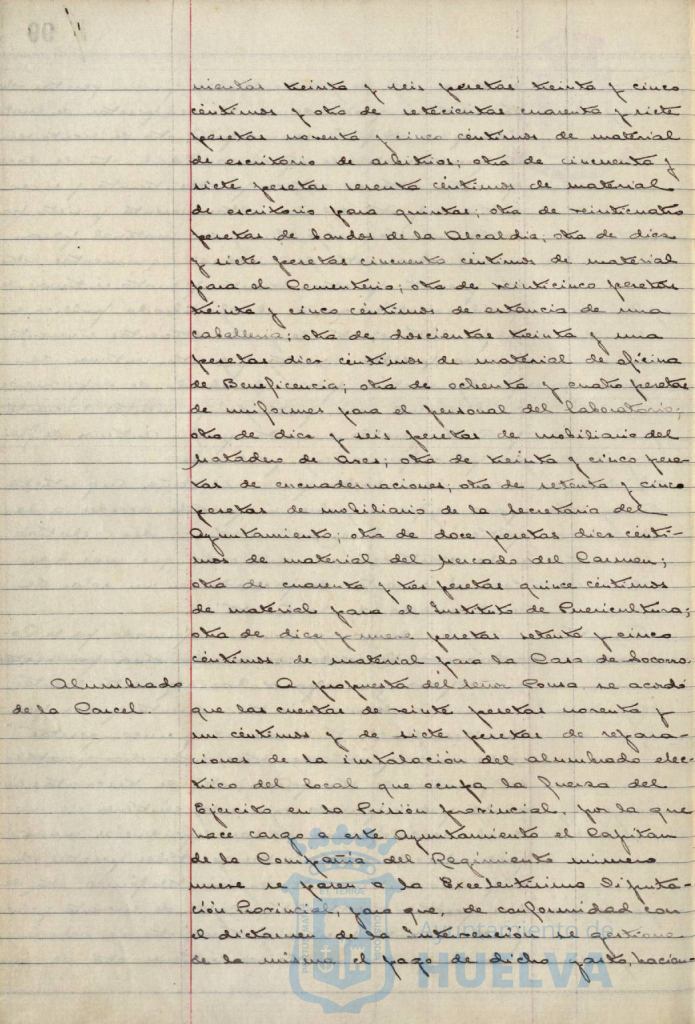 nientas treinta y seis pesetas treinta y cinco
céntimos y otra de setecientas cuarenta y siete
pesetas noventa y cinco céntimos de material
de escritorio de arbitrios; otra de cincuenta y
siete pesetas sesenta céntimos de material
de escritorio para quintas; otra de veinticuatro
pesetas de bandos de la Alcaldia; otra de diez
y siete pesetas cincuenta céntimos de material
para el Cementerio; otra de veinticinco pesetas
treinta y cinco céntimos de estancia de una
caballeria; otra de doscientas treinta y una
pesetas diez céntimos de material de oficina
de Beneficencia; otra de ochenta y cuatro pesetas
de uniformes para el personal del laboratorio;
otra de diez y seis pesetas de mobiliario del
Matadero de Aves; otra de treinta y cinco pese-
tas de encuadernaciones; otra de setenta y cinco
pesetas de mobiliario de la Secretaria del
Ayuntamiento; otra de doce pesetas diez cénti-
mos de material del Mercado del Carmen;
otra de cuarenta y tres pesetas quince céntimos
de material para el Instituto de Puericultura;
otra de diez y nueve pesetas setenta y cinco
céntimos de material para la Casa de Socorro.
Alumbrado
de la Carcel.
A propuesta del Señor Pousa, se acordó
que las cuentas de veinte pesetas noventa y
un céntimos y de siete pesetas de repara-
ciones de la instalación del alumbrado elec-
trico del local que ocupa la fuerza del
Ejercito en la Prisión provincial, por la que
hace cargo a este Ayuntamiento el Capitan
de la Compañia del Regimiento número
nueve se pasen a la Excelentisima Diputa-
ción Provincial, para que, de conformidad con
el dictamen de la Intervención se gestione
de la misma el pago de dicho gasto, hacien-
Ayuntamiento de
HUELVA